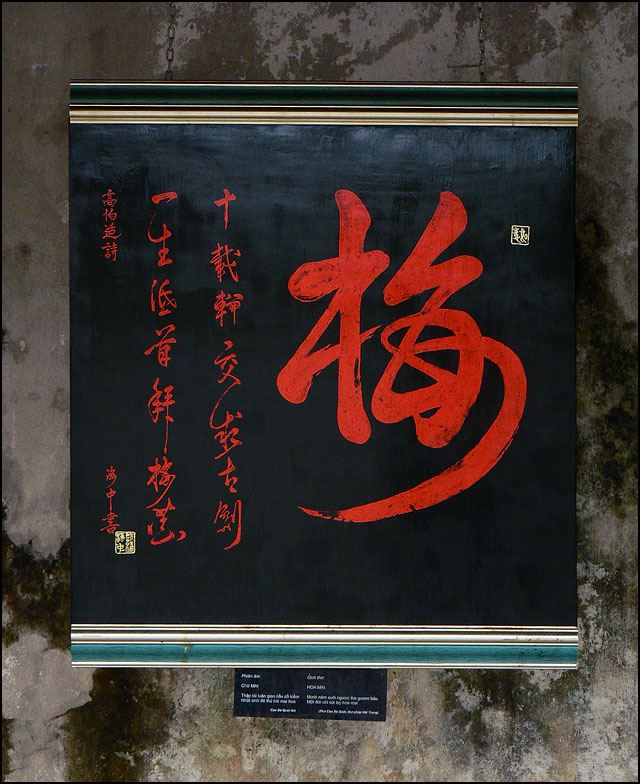 梅
十載輪交求古劍
一生低首拜梅花
高伯适詩
海中書
Phiên âm:
CHỮ MAI
Thập tải luân giao cầu cổ kiếm
Nhất sinh đê thủ bái mai hoa
(Cao Bá Quát thi)
Dịch thơ:
HOA MAI
Mười năm xuôi ngược tìm gươm báu
Một đời chỉ cúi lạy hoa mai
(Thơ Cao Bá Quát, thư pháp Hải Trung)